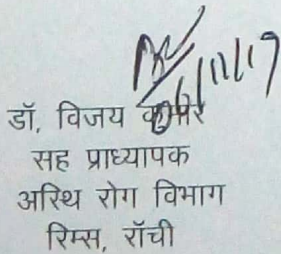 06/11/17
डॉ. विजय कुमार
सह प्राध्यापक
अस्थि रोग विभाग
रिम्स, राँची